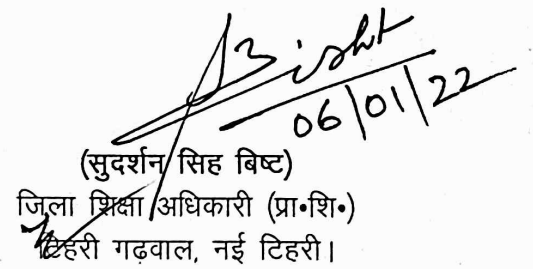 SBisht
06/01/22
(सुदर्शन सिंह बिष्ट)
जिला शिक्षा अधिकारी (प्रा॰शि॰)
टिहरी गढ़वाल, नई टिहरी।